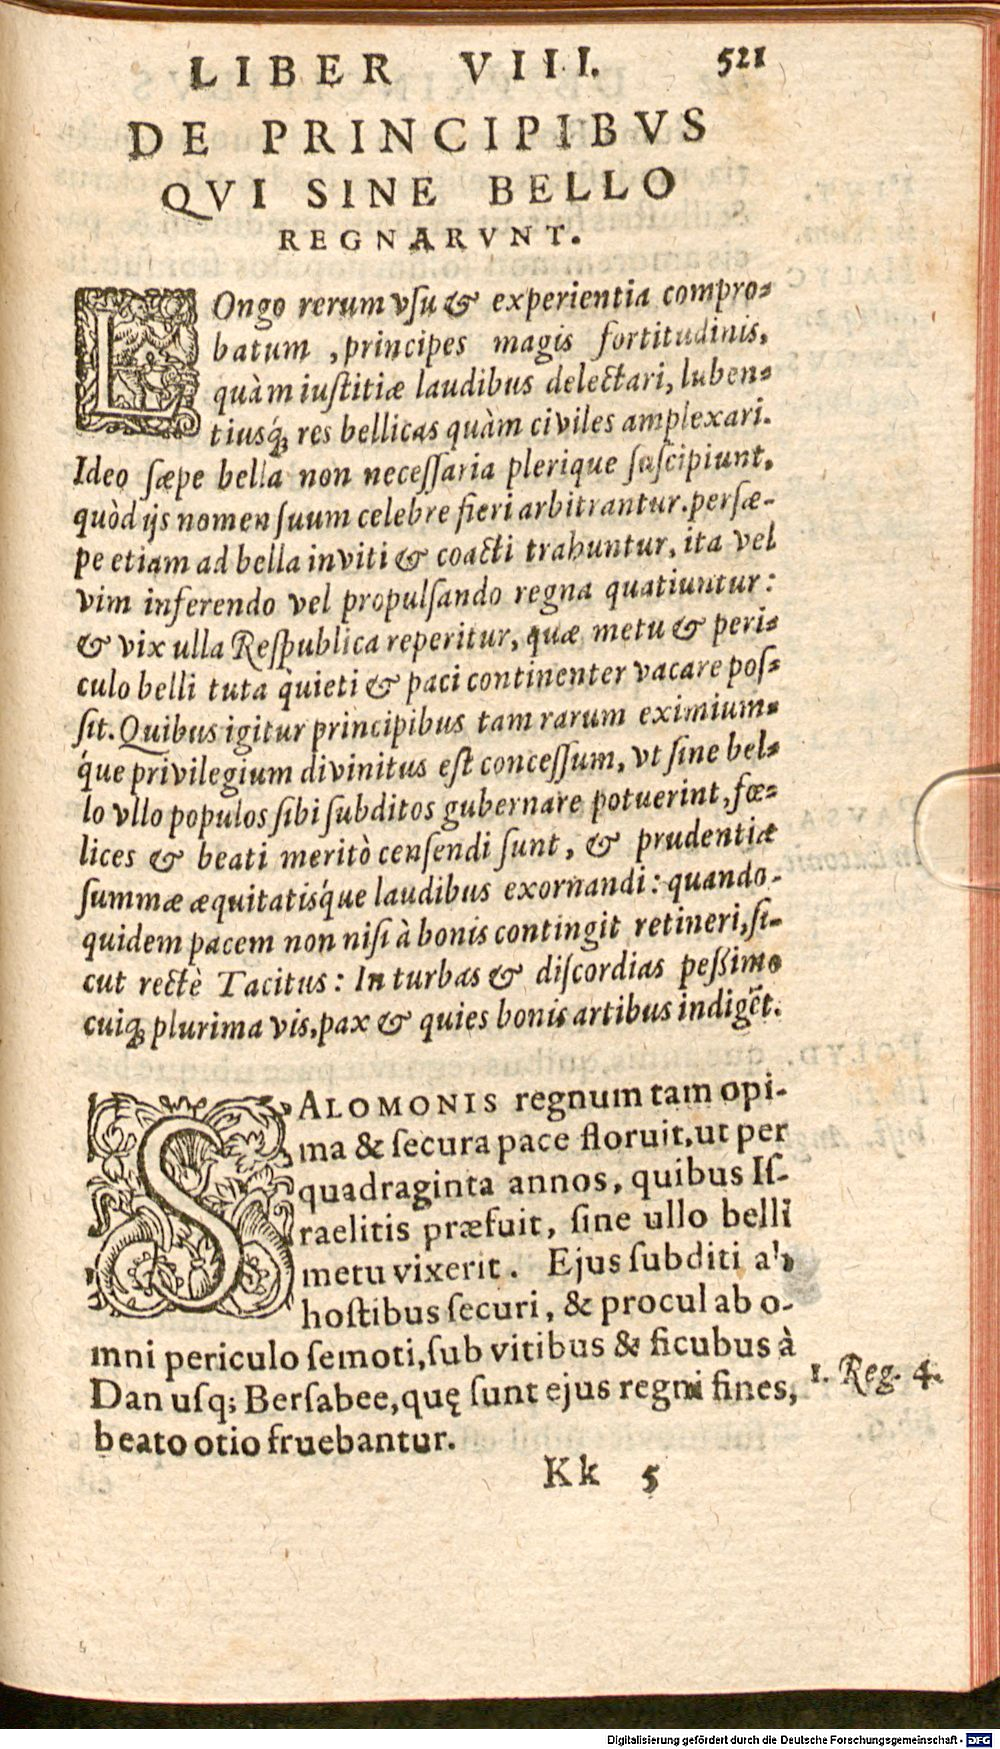 LIBER VIII. 521
DE PRINCIPIBVS
QVI SINE BELLO
REGNARVNT.
LOngo rerum vſu & experientia compro-
batum, principes magis fortitudinis,
quàm iuſtitiæ laudibus delectari, luben-
tiusq́; res bellicas quàm civiles amplexari.
Ideo ſæpe bella non neceſſaria plerique ſuſcipiunt,
quòd ijs nomen ſuum celebre fieri arbitrantur. perſæ-
pe etiam ad bella inviti & coacti trahuntur, ita vel
vim inferendo vel propulſando regna quatiuntur:
& vix ulla Reſpublica reperitur, quæ metu & peri-
culo belli tuta quieti & paci continenter vacare poſ-
ſit. Quibus igitur principibus tam rarum eximium-
q́ue privilegium divinitus eſt conceſſum, vt ſine bel-
lo vllo populos ſibi ſubditos gubernare potuerint, fœ-
lices & beati meritò cenſendi ſunt, & prudentiæ
ſummæ æquitatisq́ue laudibus exornandi: quando-
quidem pacem non niſi à bonis contingit retineri, ſi-
cut rectè Tacitus: In turbas & diſcordias peſsimo
cuiq; plurima vis, pax & quies bonis artibus indiget.
SALOMONIS regnum tam opi-
ma & ſecura pace floruit, ut per
quadraginta annos, quibus Iſ-
raelitis præfuit, ſine ullo belli
metu vixerit. Ejus ſubditi ab
hoſtibus ſecuri, & procul ab o-
mni periculo ſemoti, ſub vitibus & ficubus à
Dan uſq; Berſabee, quę ſunt ejus regni fines,
beato otio fruebantur.
1. Reg. 4.
Kk 5
Digitalisierung gefördert durch die Deutsche Forschungsgemeinschaft - DFG